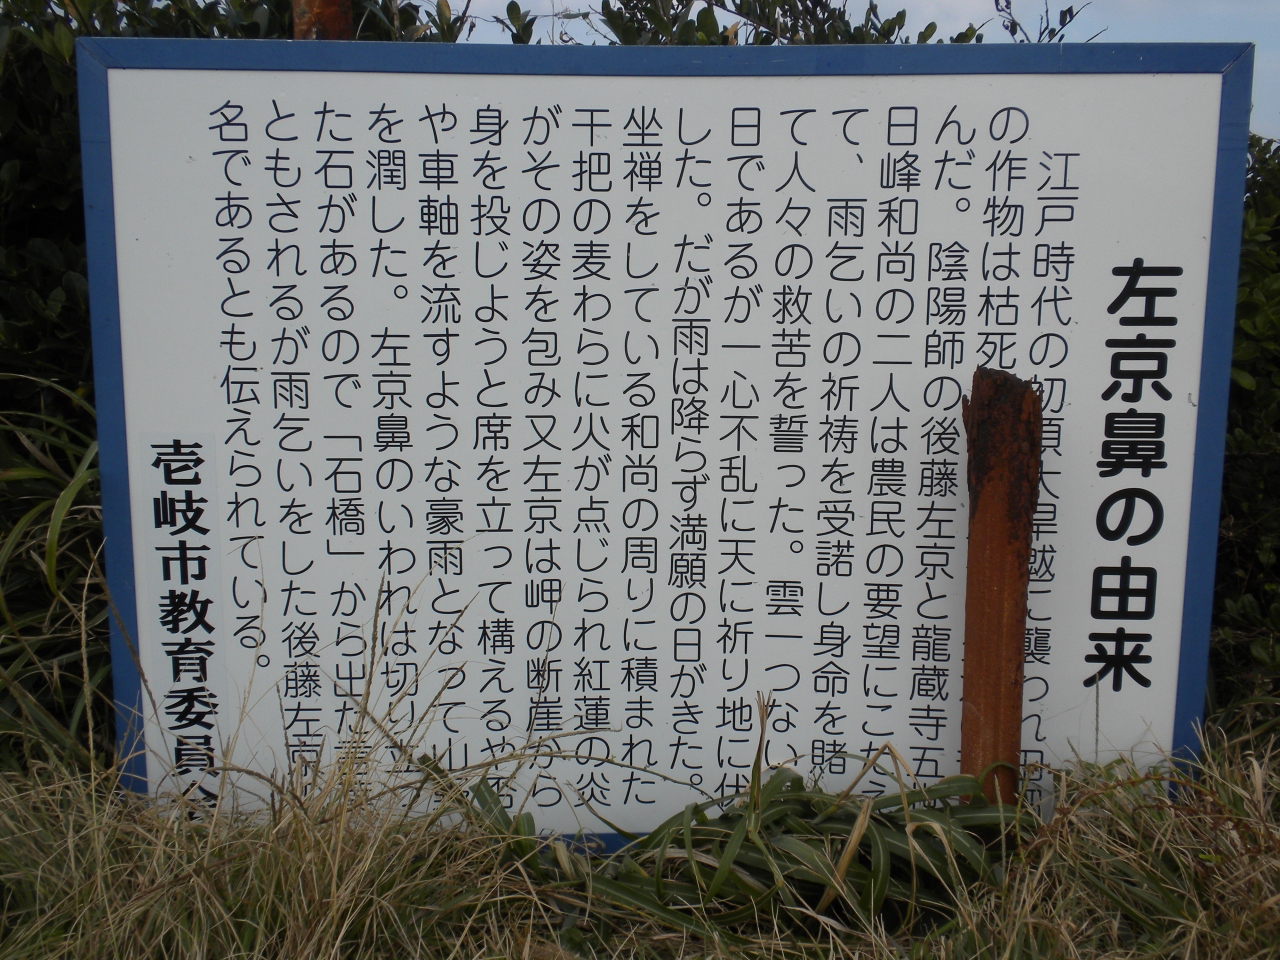 左京鼻の由来
江戸時代の初頃大旱魃に襲われ田
の作物は枯死
んだ。陰陽師の後藤左京と龍蔵寺五
日峰和尚の二人は農民の要望にこたえ
て、雨乞いの祈祷を受諾し身命を賭
て人々の救苦を誓った。雲一つない
日であるが一心不乱に天に祈り地に伏
した。だが雨は降らず満願の日がきた。
坐禅をしている和尚の周りに積まれた
干把の麦わらに火が点じられ紅蓮の炎
がその姿を包み又左京は岬の断崖から
身を投じようと席を立って構えるや否
や車軸を流すような豪雨となって山
を潤した。左京鼻のいわれは切り立
た石があるので「石橋」から出た
ともされるが雨乞いをした後藤左京
名であるとも伝えられている。
壱岐市教育委員会